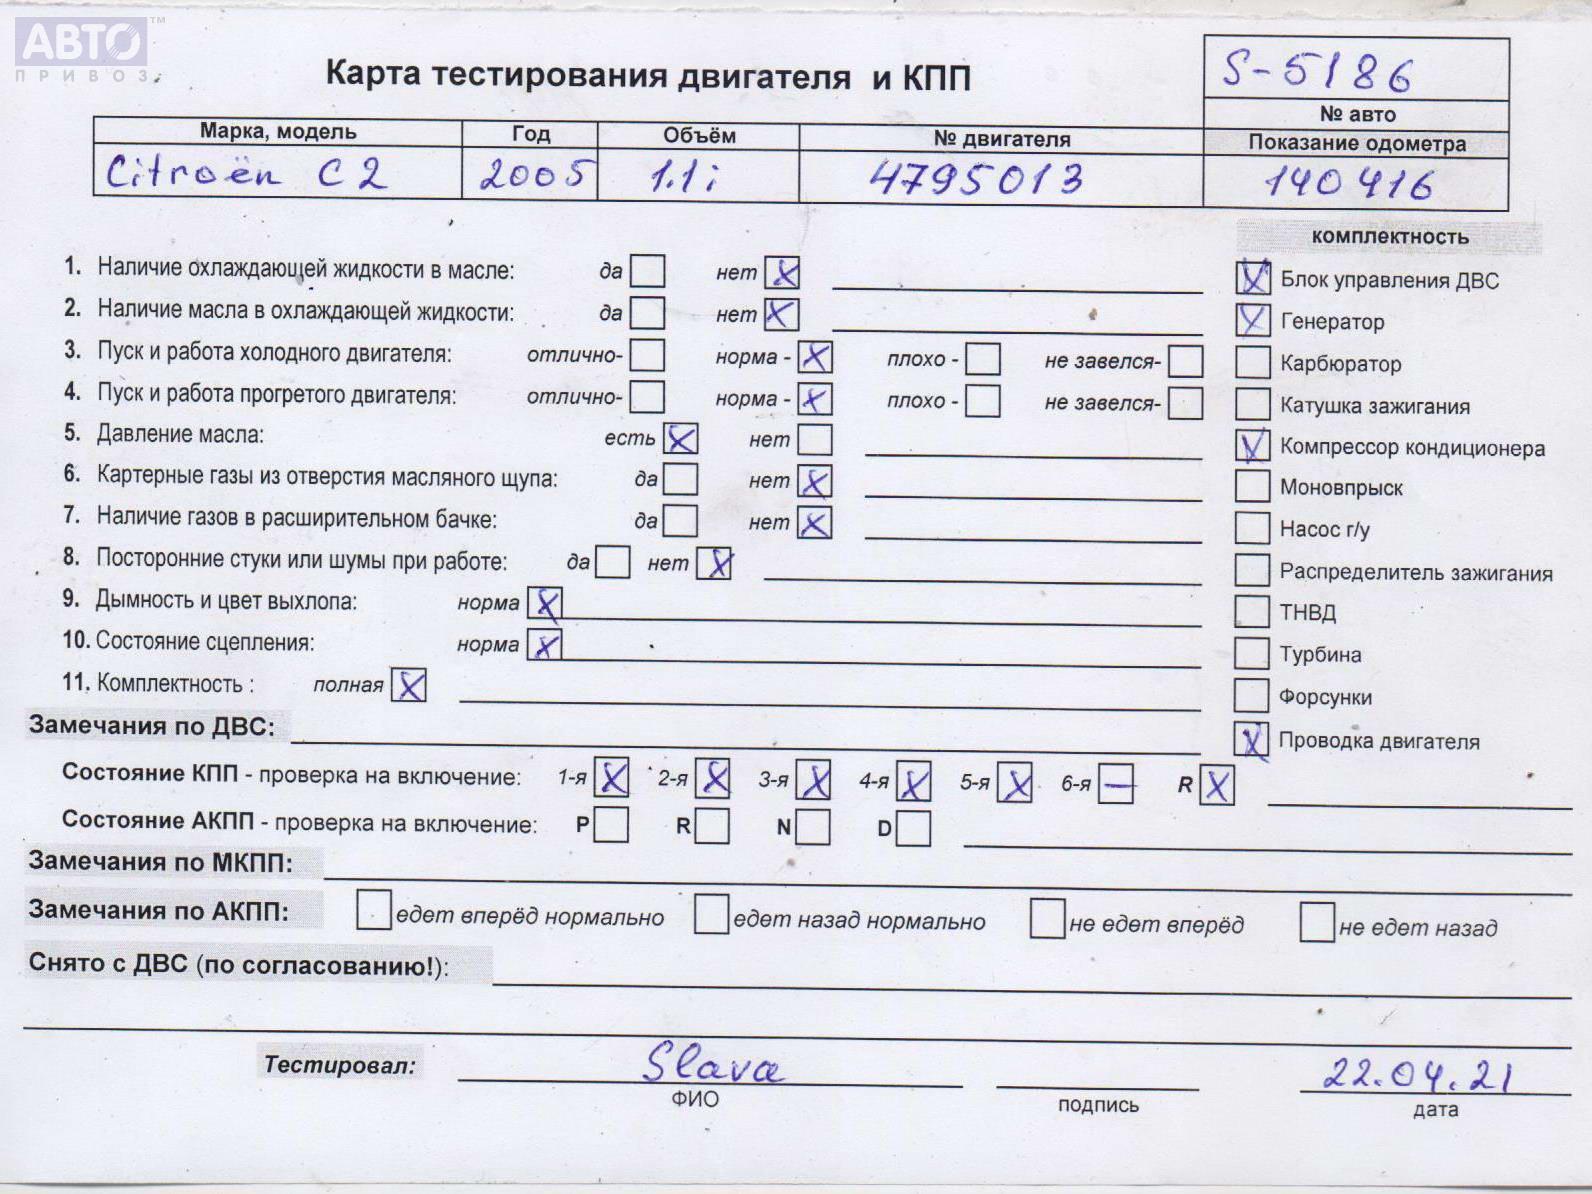 АВТО™
ПРИВОЗ
Карта тестирования двигателя и КПП
S-5186
№ авто
Марка, модель Год Объём № двигателя Показание одометра
Citroën C2 2005 1.1i 4795013 140416
комплектность
1. Наличие охлаждающей жидкости в масле: да нет X
V Блок управления ДВС
2. Наличие масла в охлаждающей жидкости: да нет X
V Генератор
3. Пуск и работа холодного двигателя: отлично- норма - X плохо - не завелся-
Карбюратор
4. Пуск и работа прогретого двигателя: отлично- норма - X плохо - не завелся-
Катушка зажигания
5. Давление масла: есть X нет
V Компрессор кондиционера
6. Картерные газы из отверстия масляного щупа: да нет X
Моновпрыск
7. Наличие газов в расширительном бачке: да нет X
Насос г/у
8. Посторонние стуки или шумы при работе: да нет X
Распределитель зажигания
9. Дымность и цвет выхлопа: норма X
ТНВД
10. Состояние сцепления: норма X
Турбина
11. Комплектность : полная X
Форсунки
Замечания по ДВС:
X Проводка двигателя
Состояние КПП - проверка на включение: 1-я X 2-я X 3-я X 4-я X 5-я X 6-я — R X
Состояние АКПП - проверка на включение: P R N D
Замечания по МКПП:
Замечания по АКПП: едет вперёд нормально едет назад нормально не едет вперёд не едет назад
Снято с ДВС (по согласованию!):
Тестировал: Slava 22.04.21
ФИО подпись дата